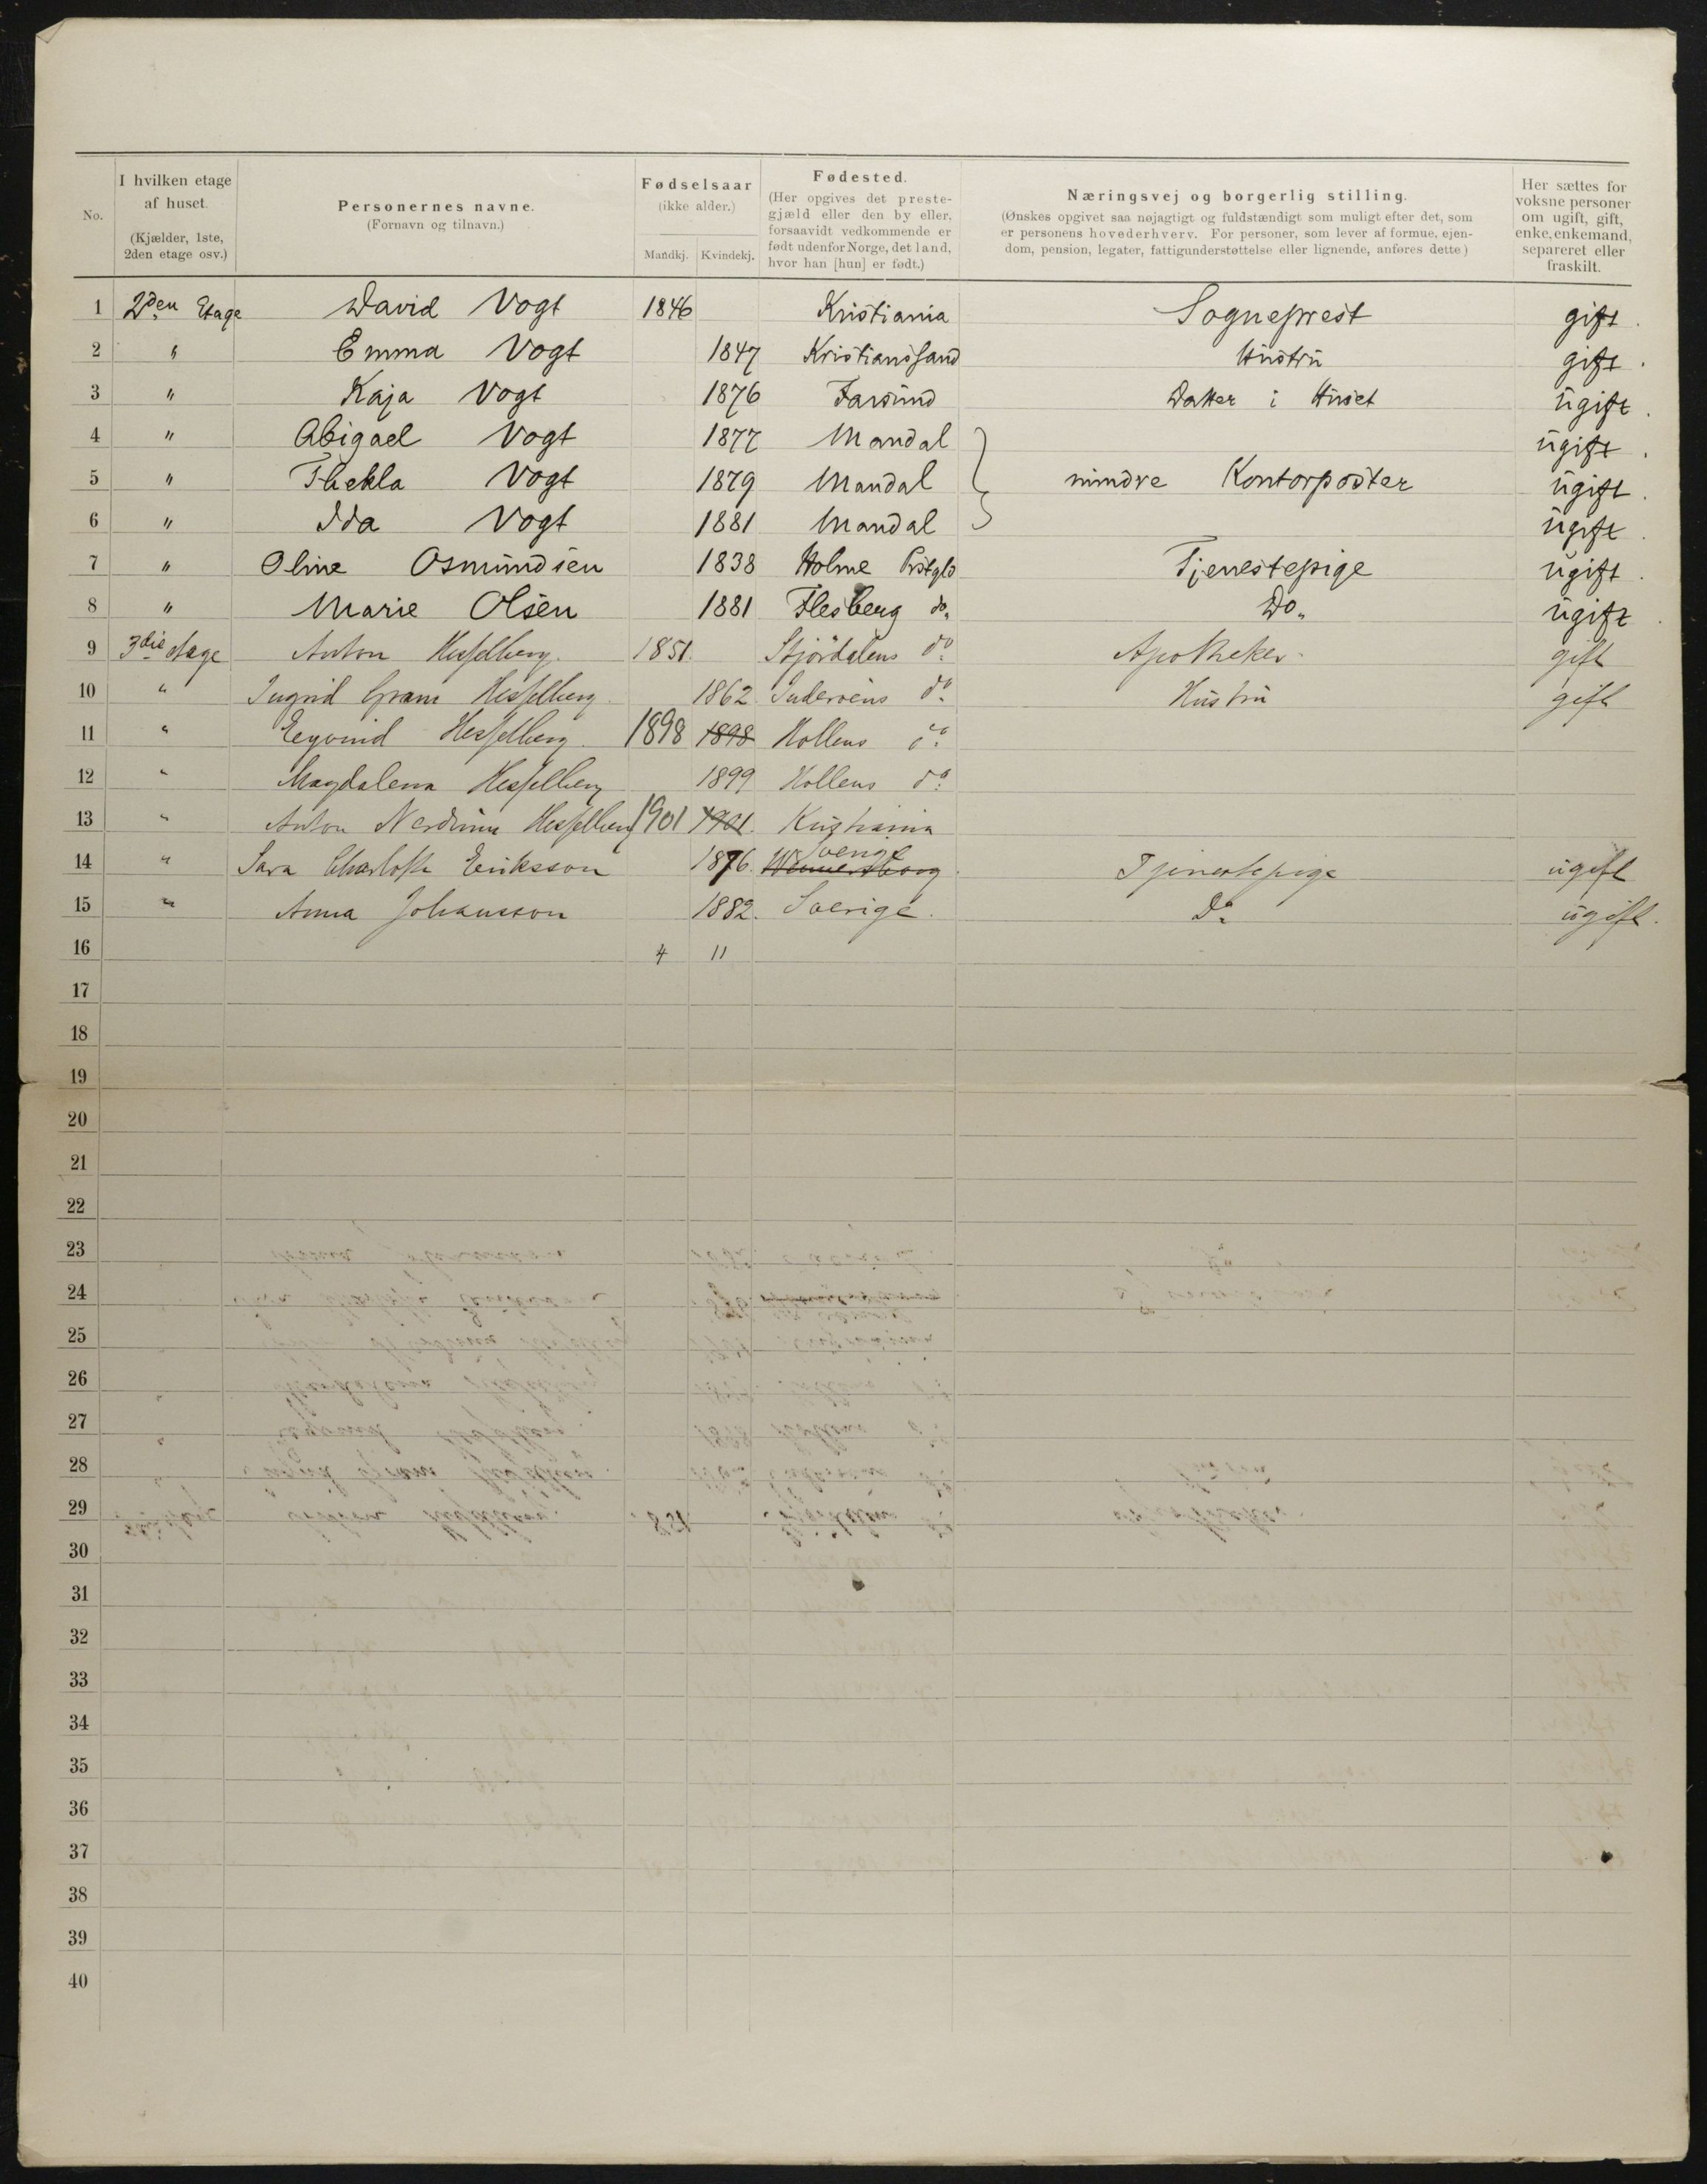 No.
I hvilken etage
af huset.
(Kjælder, 1ste,
2den etage osv.)
Personernes navne.
(Fornavn og tilnavn.)
Fødselsaar
(ikke alder.)
Mandkj. Kvindekj.
Fødested.
(Her opgives det preste-
gjæld eller den by eller,
forsaavidt vedkommende er
født udenfor Norge, det land,
hvor han [hun] er født.)
Næringsvej og borgerlig stilling.
(Ønskes opgivet saa nøjagtigt og fuldstændigt som muligt efter det, som
er personens hovederhverv. For personer, som lever af formue, ejen-
dom, pension, legater, fattigunderstøttelse eller lignende, anføres dette)
Her sættes for
voksne personer
om ugift, gift,
enke, enkemand,
separeret eller
fraskilt.
1 2den Etage David Vogt 1846 Kristiania Sogneprest gift.
2 " Emma Vogt 1847 Kristianssand Hustru gift.
3 " Kaja Vogt 1876 Farsund Datter i Huset ugift.
4 " Abigael Vogt 1877 Mandal ugift.
5 " Thekla Vogt 1879 Mandal mindre Kontorposter ugift.
6 " Ida Vogt 1881 Mandal ugift.
7 " Oline Osmundsen 1838 Holme Prstgld Tjenestepige ugift.
8 " Marie Olsen 1881 Flesberg do. Do. ugift.
9 3die etage Anton Hesselberg. 1851. Stjørdalens do. Apotheker. gift
10 " Ingrid Gram Hesselberg. 1862 Inderøens do. Hustru gift
11 " Eyvind Hesselberg. 1898 1898 Hollens do.
12 " Magdalena Hesselberg 1899 Hollens do.
13 " Anton Hesselberg 1901 1901. Kristiania
14 " Sara Charlotte Eriksson 1876. Sverige Tjenestepige ugift
15 " Anna Johansson 1882. Sverige. Do. ugift.
16 4 11
17
18
19
20
21
22
23
24
25
26
27
28
29
30
31
32
33
34
35
36
37
38
39
40